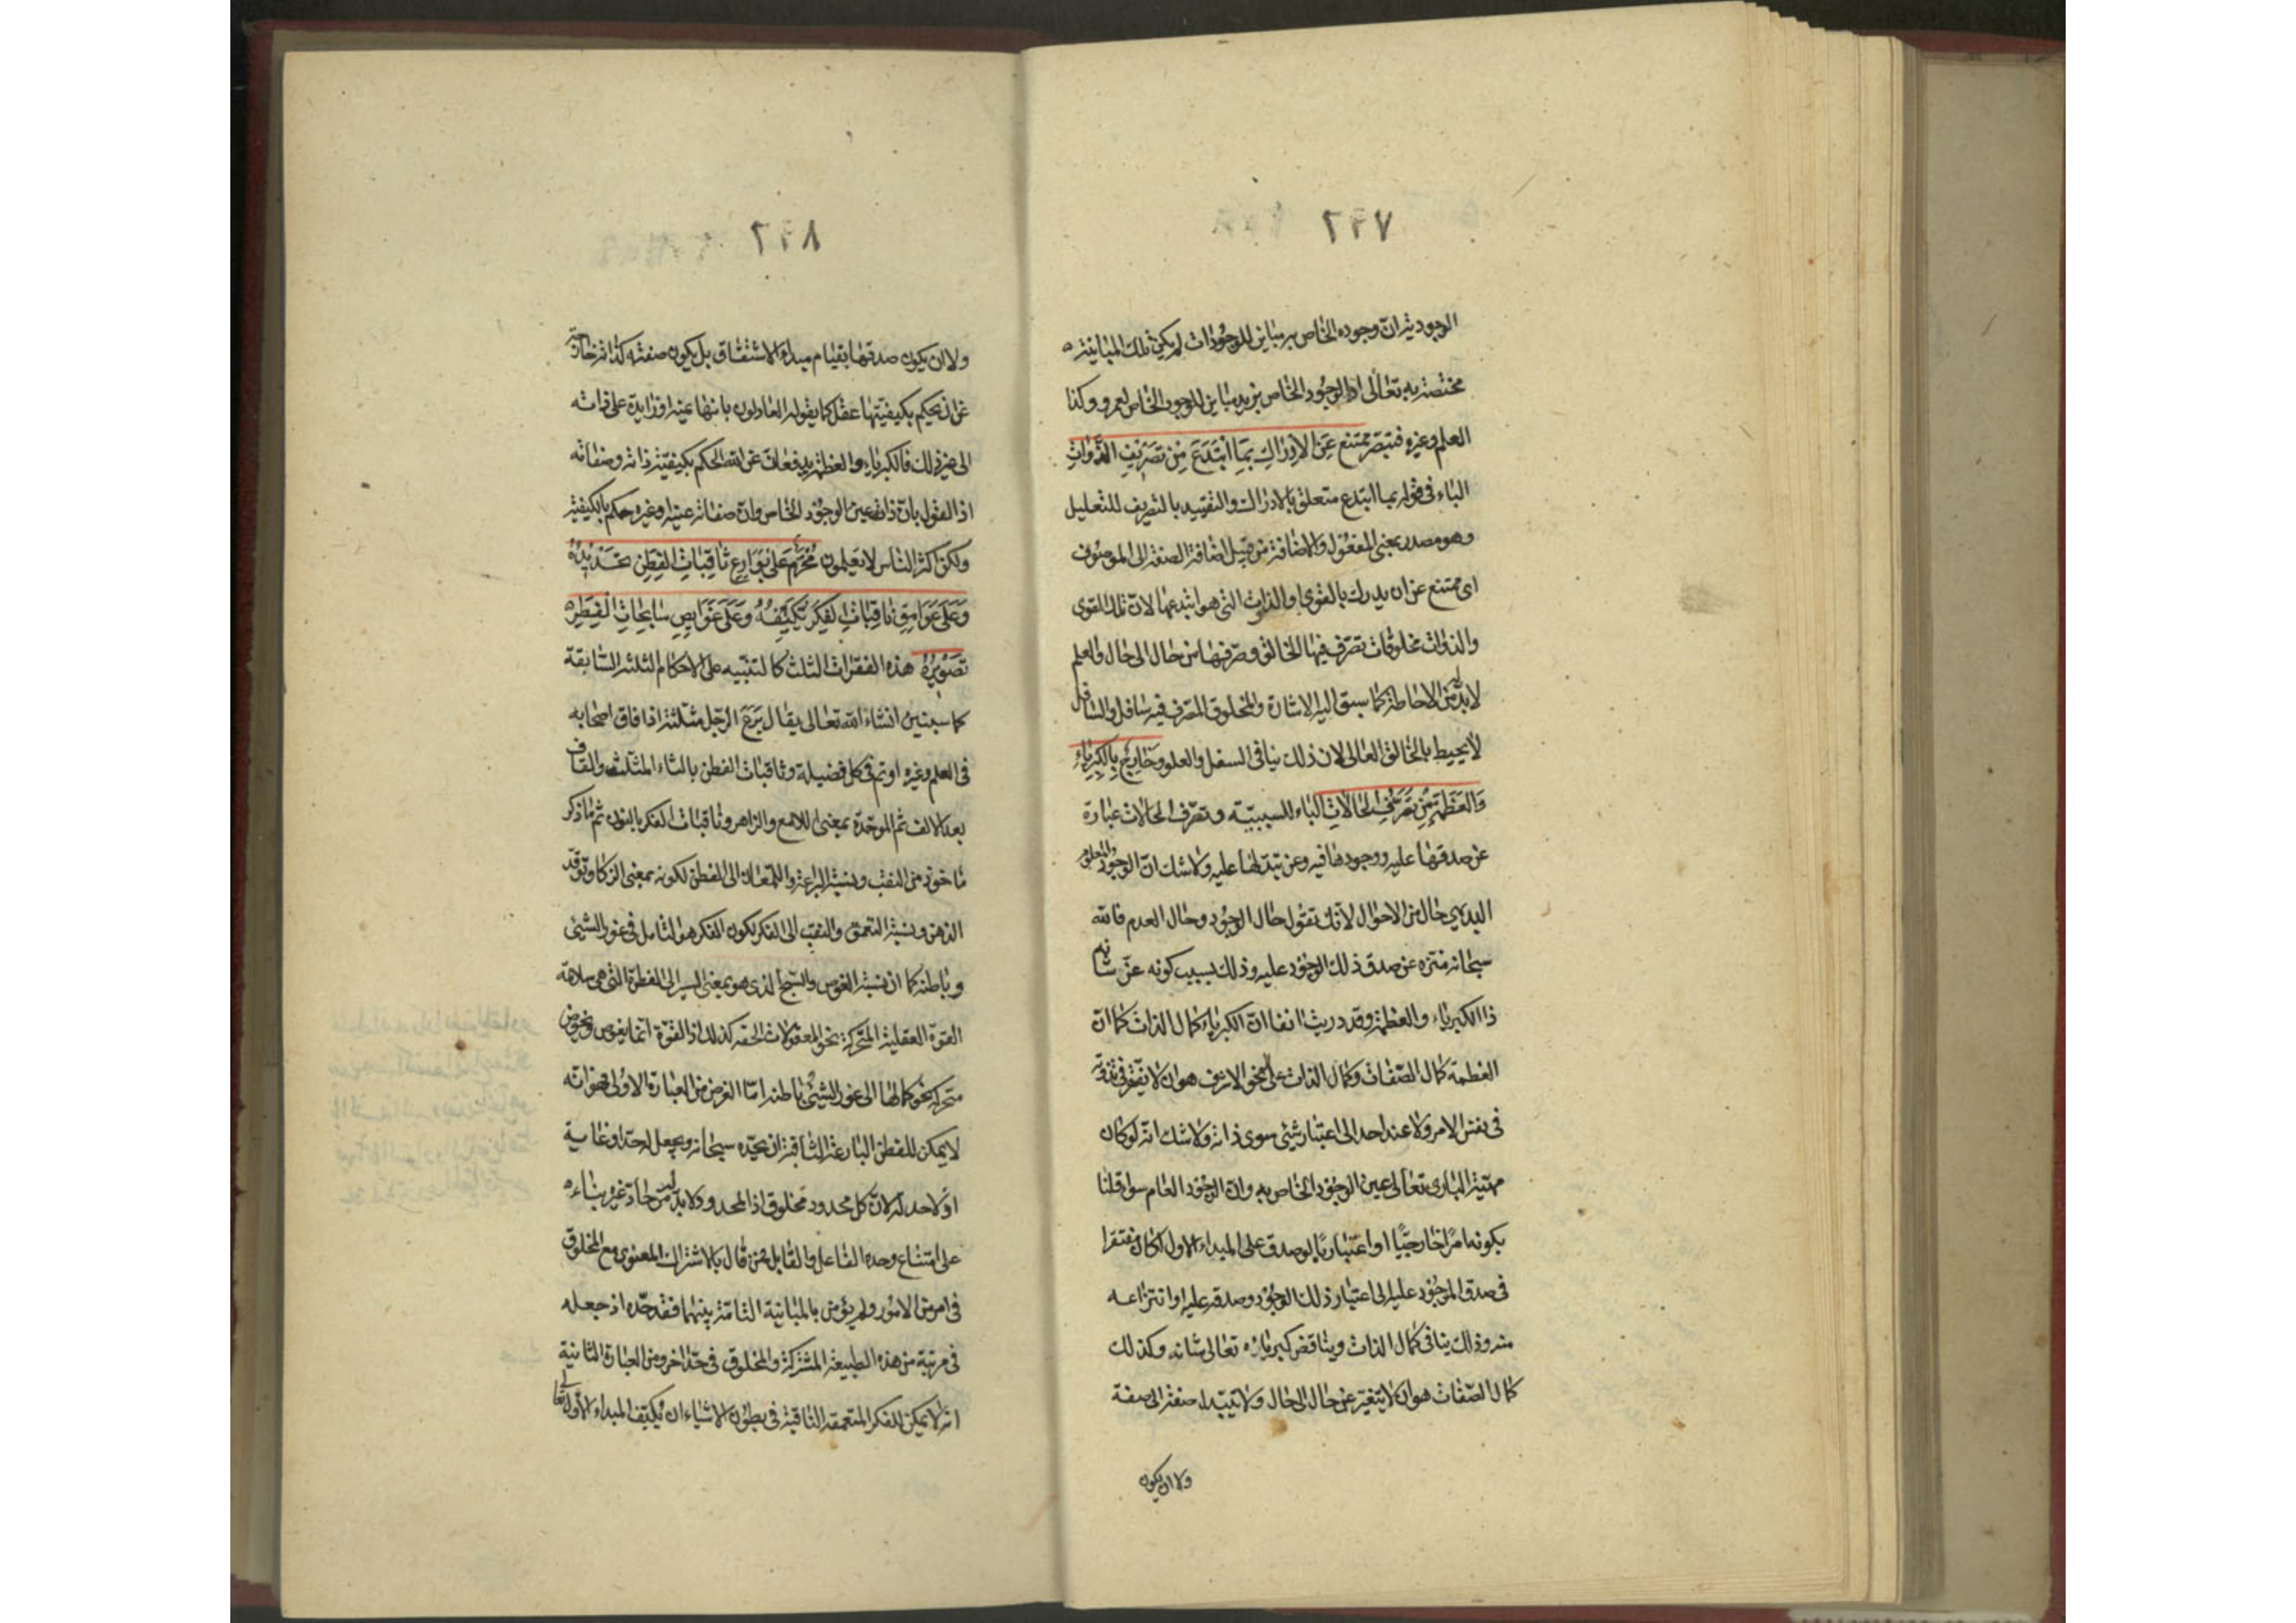 ٢٣٧
الوجودية ان وجوده الخاص به مباين للوجودات لم يكن تلك المباينة
مختصة به تعالى اذ الوجود الخاص بزيد مباين للوجود الخاص لعمرو وكذا
العلم وغيره فتبصر ممتنع عَنِ الاِدْرٰاكِ بمَا ابْتَدَعَ مِنْ تَصْرِيْفِ الذَّوٰاتِ
الباء فى قوله بما ابتدع متعلق بالادراك والتقييد بالتصريف للتعليل
وهو مصدر بمعنى المفعول والاضافة من قبيل اضافة الصفة الى الموصوف
اى ممتنع عن ان يدرك بالقوى والذوات التى هو ابتدعها لان تلك القوى
والذوات مخلوقات تصرف فيها الخالق وصرفها من حال الى حال والعلم
لابد له من الاحاطة كما سبق اليه الاشارة والمخلوق المصرف فيه سافل والسافل
لا يحيط بالخالق العالى لان ذلك ينافى السفل والعلو وَخٰارِجٌ بِالكِبْرِيٰاءِ
وَالعَظَمَةِ مِنْ تَصَرُّفِ الحٰالاٰتِ الباء للسببيّه وتصرف الحالات عبارة
عن صدقها عليه ووجودها فيه وعن تبدلها عليه ولا شك ان الوجود المعلوم
البديهى حال من الاحوال لانك تقول حال الوجود وحال العدم فالله
سبحانه منزه عن صدق ذلك الوجود عليه وذلك بسبب كونه عزّ شانه
ذا الكبرياء والعظمة وقد دريت انفا ان الكبرياء كمال الذات كما ان
العظمة كمال الصّفات وكمال الذات على النحو الاشرف هو ان لا يفتقر فى تذوّته
فى نفس الامر ولا عند احد الى اعتبار شئ سوى ذاته ولا شك انه لو كان
مهيّة البارى تعالى عين الوجود الخاص به وان الوجود العام سواء قلنا
بكونه امرًا خارجيًّا او اعتباريًّا لو صدق على المبداء الاول لكان مفتقرا
فى صدق الموجود عليه الى اعتبار ذلك الوجود وصدقه عليه او انتزاعه
منه وذلك ينافى كمال الذات ويناقض كبرياؤه تعالى شانه وكذلك
كمال الصّفات هو ان لا يتغير عن حال الى حال ولا يتبدل صفة الى صفة
ولا ان يكون
٢٣٨
ولا ان يكون صدقها بقيام مبداء الاشتقاق بل يكون صفته كذاته خارجة
عن ان يحكم بكيفيتها عقل كما يقوله العادلون بانها عينه او زايدة على ذاته
الى غير ذلك فالكبرياء والعظمة يدفعان عن الله الحكم بكيفيّة ذاته وصفاته
اذ القول بان ذاته عين الوجود الخاص وان صفاته عينه او غيره حكم بالكيفية
ولكن اكثر الناس لا يعلمون مُحَرَّمٌ عَلىٰ بَوٰارِعِ ثٰاقِبٰاتِ الفِطَنِ تَحْدِيْدُهُ
وَعَلىٰ عَوَامِقِ نٰاقِبٰاتِ الفِكَرِ تَكْيِيْفُهُ وَعَلىٰ غَوٰايِصِ سٰابِحٰاتِ الفِطَرِ
تَصْوِيْرُهُ هذه الفقرات الثلث كالتنبيه على الاحكام الثلثة السّابقة
كما سيتبين انشاء الله تعالى يقال بَرَعَ الرّجل مثلثة اذا فاق اصحابه
فى العلم وغيره او تم فى كل فضيلة وثاقبات الفطن بالثاء المثلث والقاف
بعد الالف ثم الموحّدة بمعنى اللامع والزاهر وناقبات الفكر بالنون ثم ما ذكر
ماخوذ من النقب ونسبة البراعة واللمعان الى الفطن لكونه بمعنى الزكا وتوقد
الذهن ونسبة التعمق والنقب الى الفكر لكون الفكر هو التامل فى غور الشئ
وباطنه كما ان نسبة الغوص والسّبح الذى هو بمعنى السير الى الفطرة التى هى سلامة
القوّة العقلية المتحركة نحو المعقولات الحقه كذلك اذ القوّة انما يغوص ويخوض
متحركة نحو كمالها الى غور الشئ وباطنه امّا الغرض من العبارة الاولى فهو انه
لا يمكن للفطن البارعة الثاقبة ان يحدّه سبحانه ويجعل له حدّا وغاية
اذ لا حد له لان كل محدود مخلوق اذ المحدود لابد له من حادّ غيره بناء
على امتناع وحدة الفاعل والقابل فمن قال بالاشتراك المعنوى مع المخلوق
فى امر من الامور ولم يؤمن بالمباينة التامّة بينهما فقد حدّه اذ جعله
فى مرتبة من هذه الطبيعة المشتركة والمخلوق فى حدّ اخر ومن العبارة الثانية
انه لا يمكن للفكر المتعمقة الناقبة فى بطون الاشياء ان تكيّف المبداء الاول تعالى